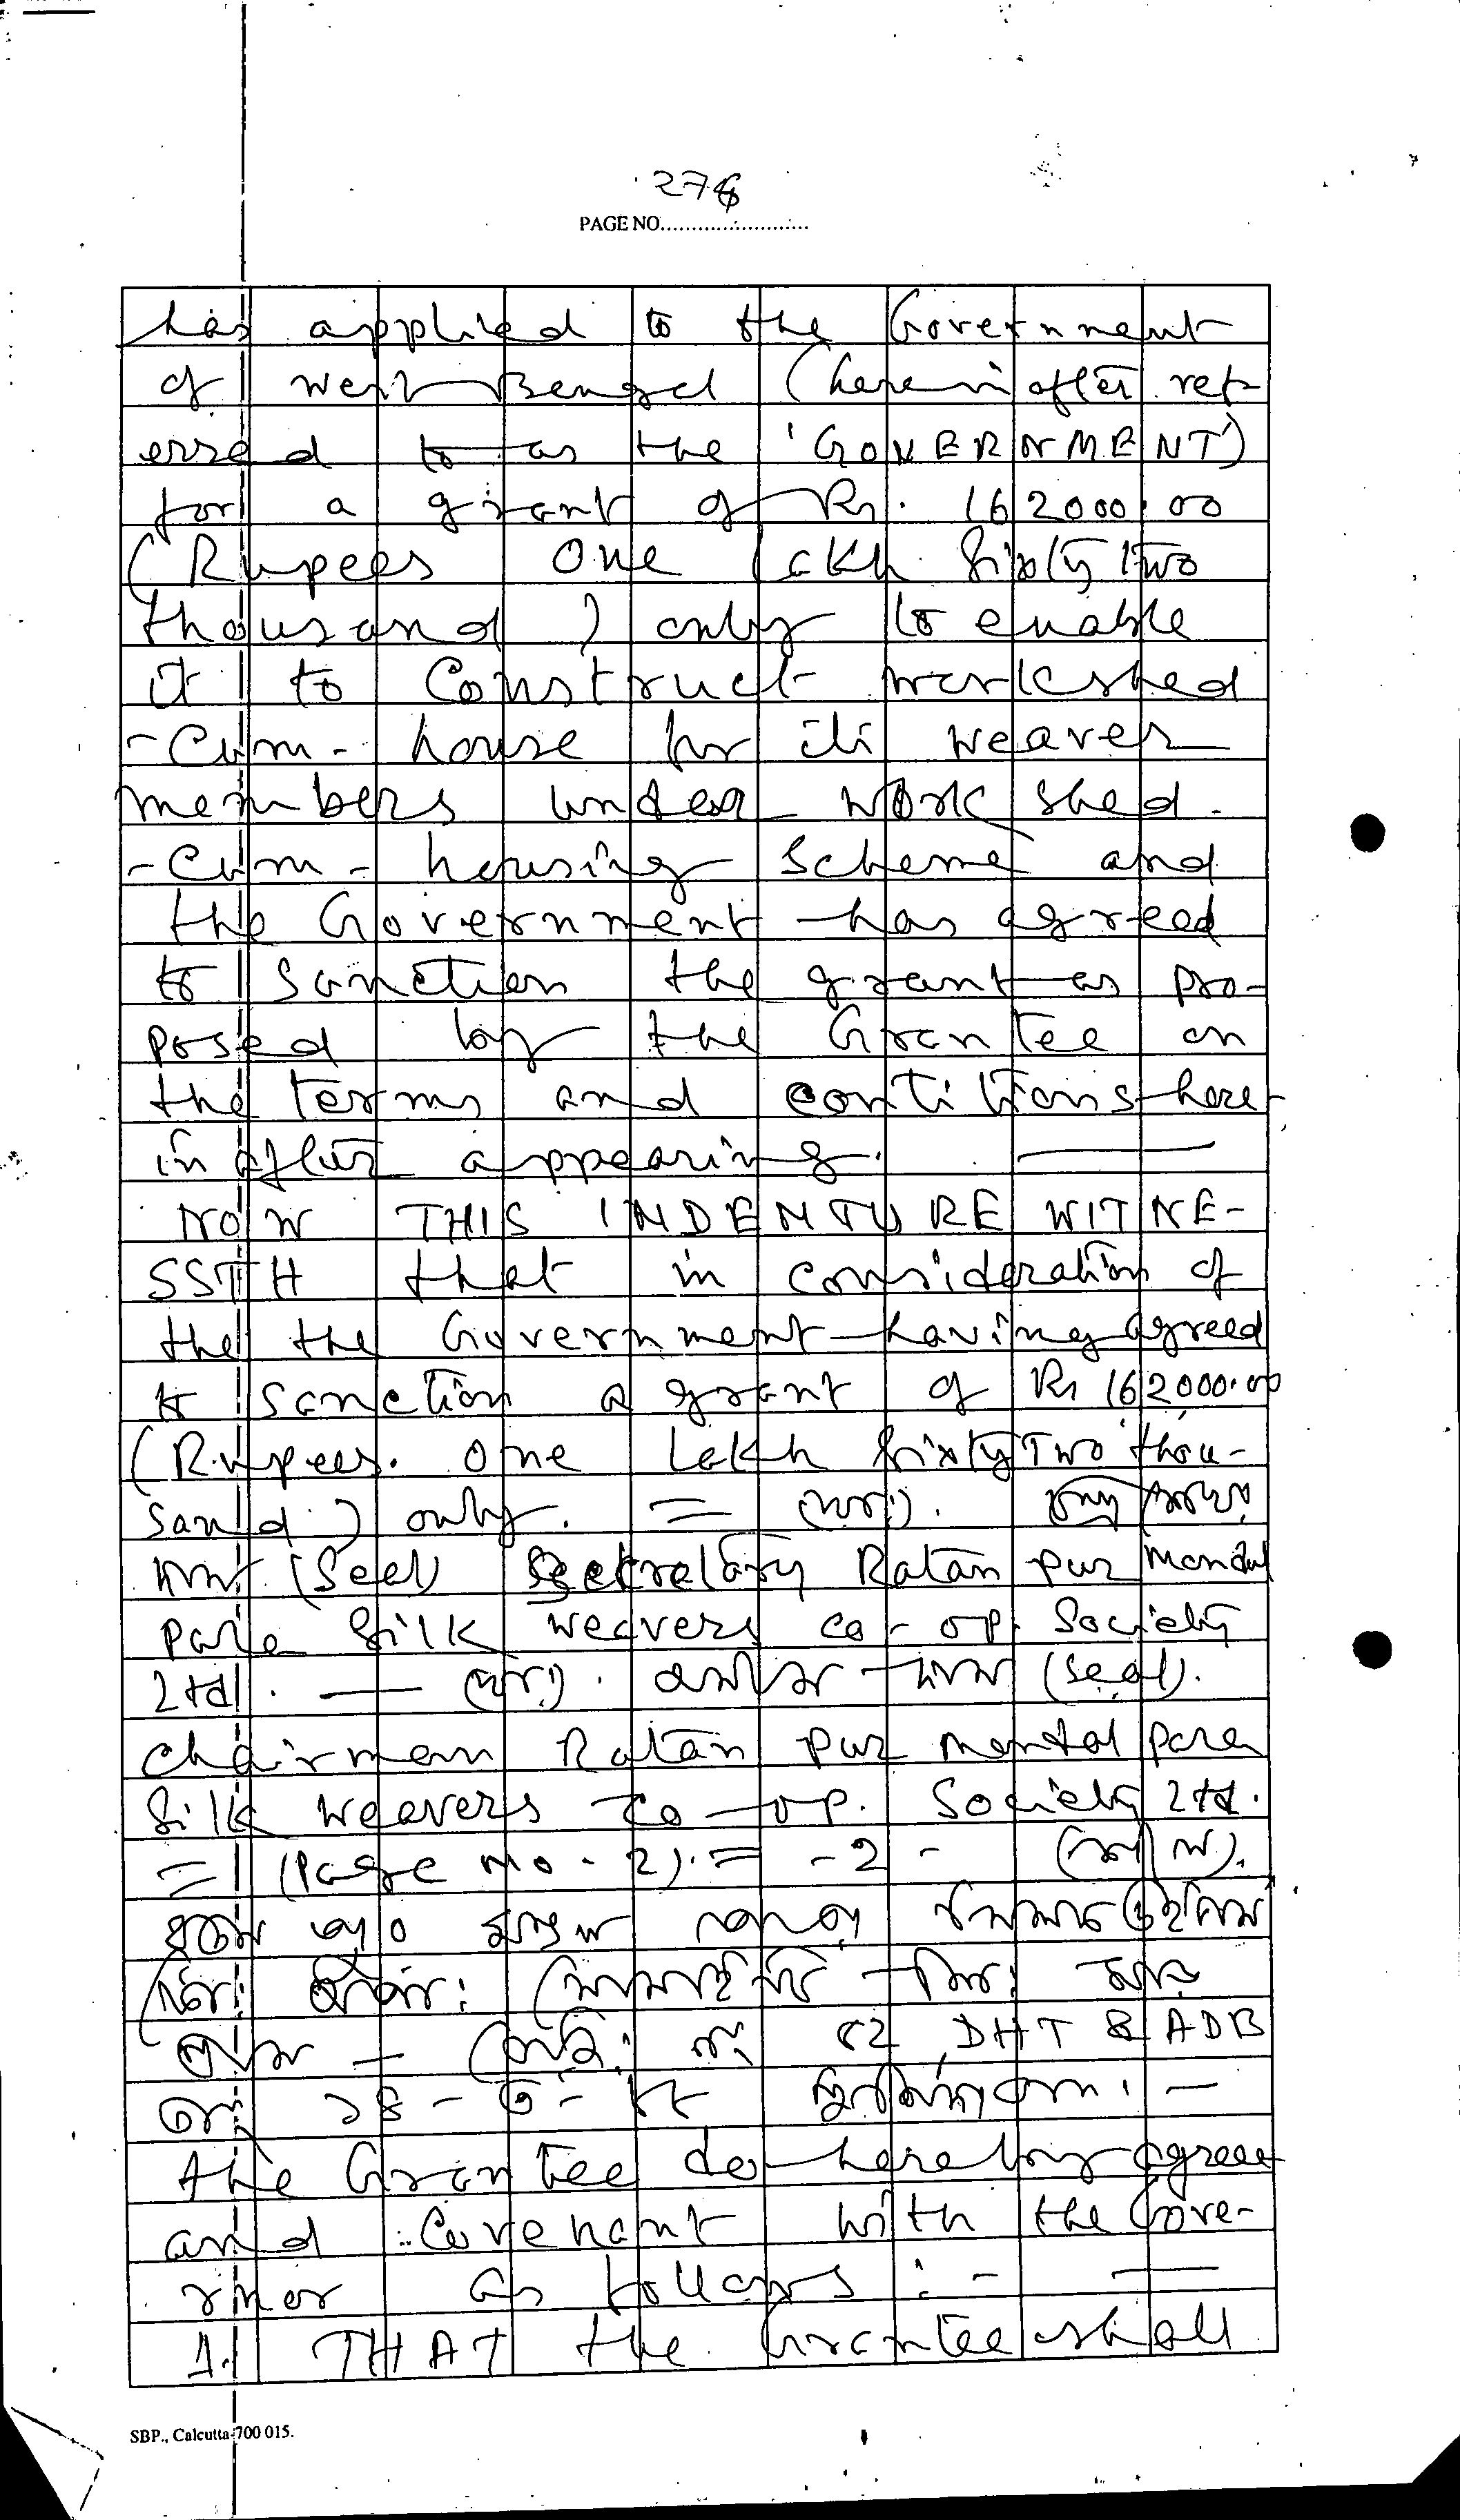 276
PAGE NO.
has applied to the Government
of West Bengal (herein after ref-
erred to as the 'GOVERNMENT')
for a grant of Rs. 162000.00
(Rupees One lakh Sixty Two
thousand) only to enable
it to Construct workshed
-Cum- house for its weaver
members under work shed-
-Cum- housing Scheme and
the Government has agreed
to sanction the grant as pro-
posed by the Grantee on
the terms and contitions here-
in after appearing. —
NOW THIS INDENTURE WITNE-
SSTH that in consideration of
the the Government having agreed
to sanction a grant of Rs 162000.00
(Rupees. One Lakh Sixty Two thou-
sand) only. = (স্বাঃ).
(Seel) Secretary Ratan pur Mandal
para Silk weavers co-op. Society
Ltd. — (স্বাঃ). (Seal).
Chairman Ratan pur mondal para
Silk weavers co-op. Society Ltd.
= (Page No. 2). = -2-
নং 82 DHT & ADB
the Grantee do hereby agree
and Covenant with the Gove-
rnor as follows :- —
1. THAT the Grantee shall
SBP., Calcutta-700 015.